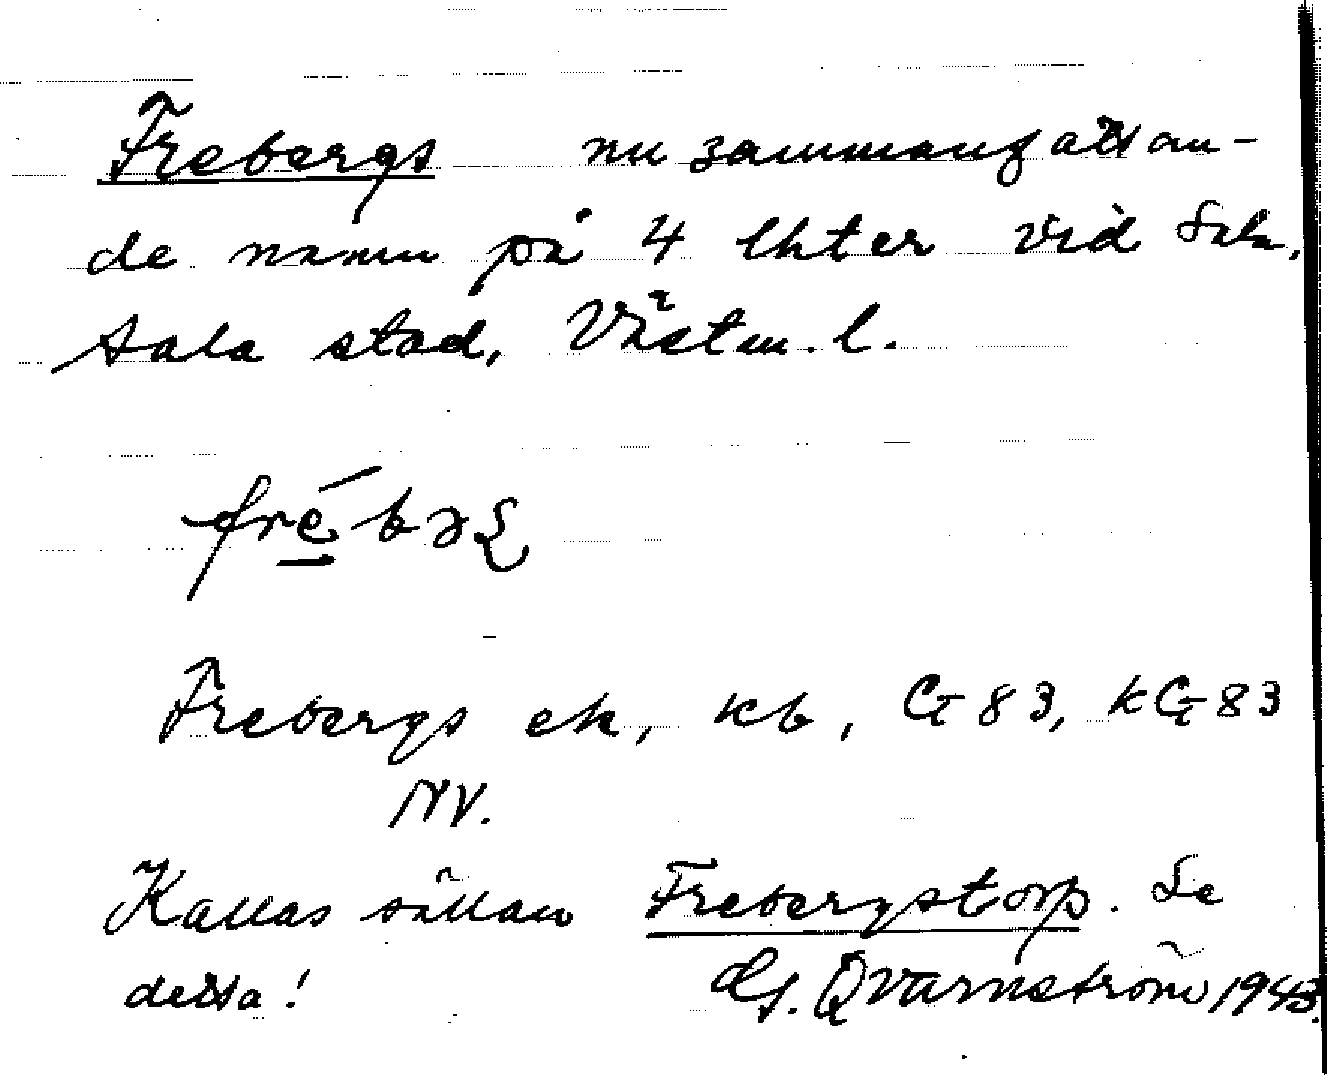 Frebergs nu sammanfattan-
de namn på 4 lhter vid Sala,
Sala stad, Västm. l.
fré̱bəʂ
Frebergs ek, kb, G 83, kG 83
NV.
Kallas sällan Frebergstorp. Se
detta! G. Qvarnström 1943.